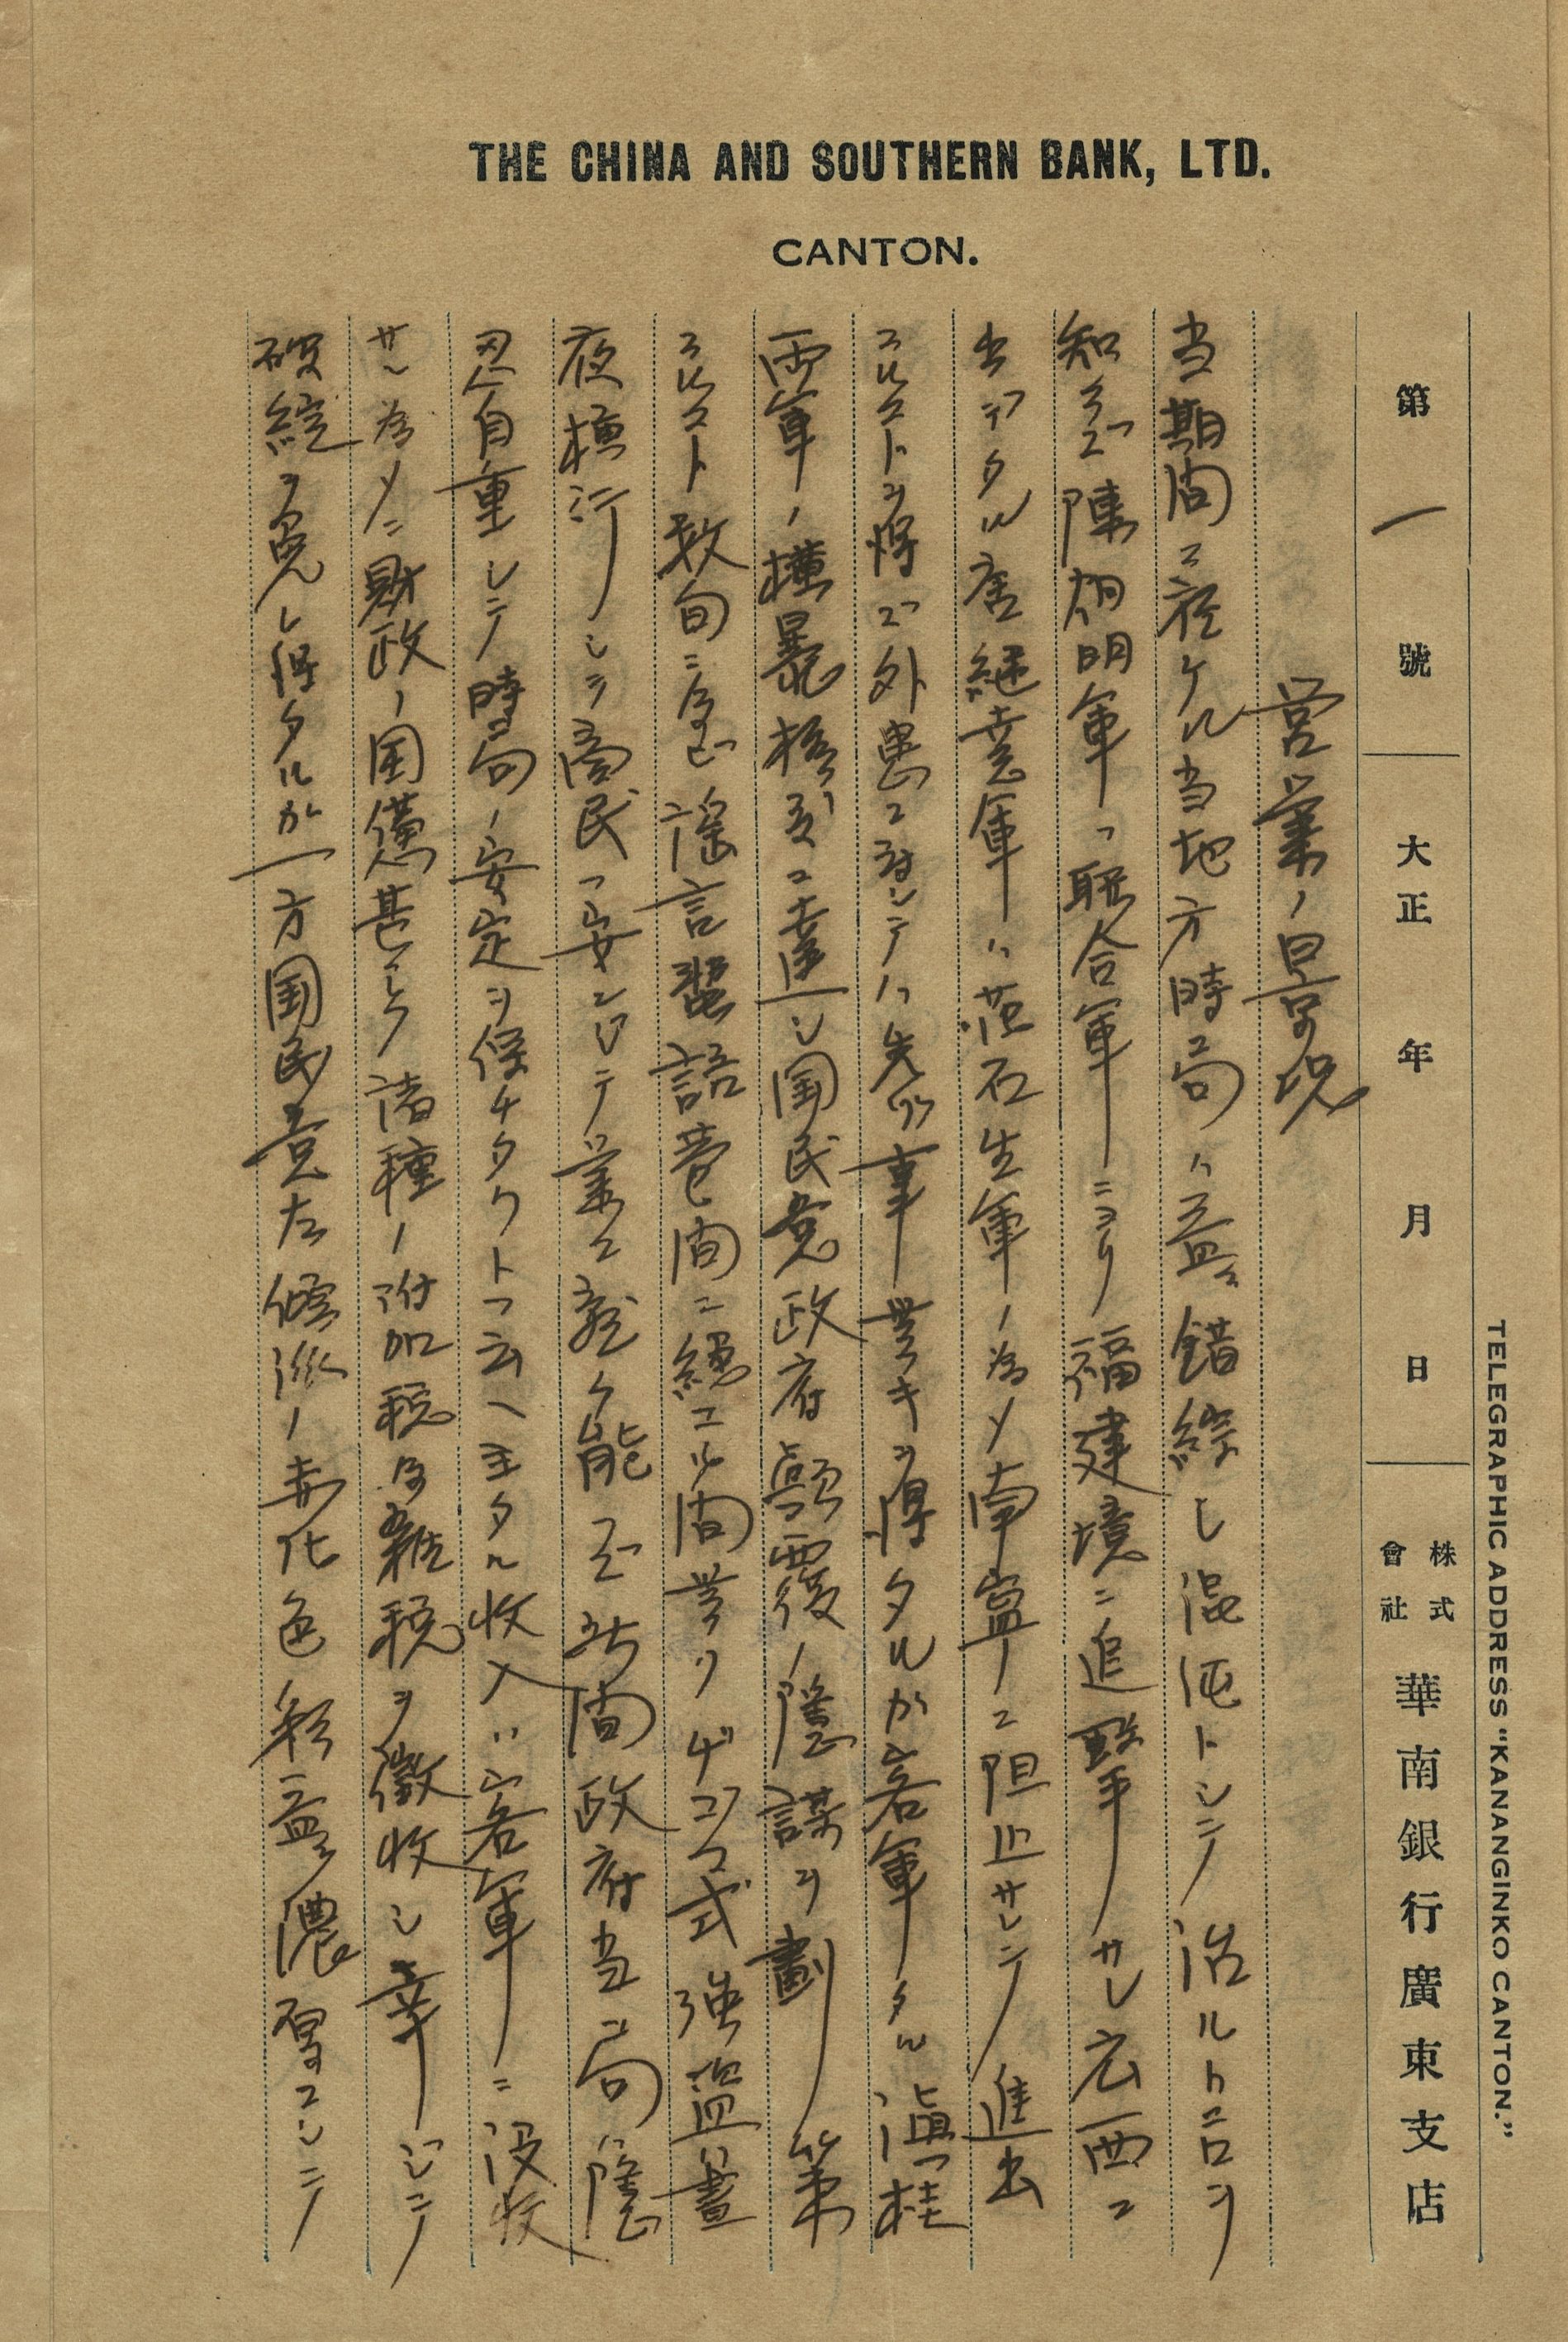 THE CHINA AND SOUTHERN BANK, LTD.
CANTON.
TELEGRAPHIC ADDRESS "KANANGINKO CANTON."
第一號 大正 年 月 日 株式會社 華南銀行廣東支店
営業ノ景況
当期間ニ於ケル当地方時局ハ益々錯綜シ混沌トシテ治ルトコロヲ
知ラズ陳烱明軍ハ聯合軍ニヨリ福建境ニ追撃サレ広西ニ
出デタル唐継尭軍ハ范石生軍ノ為メ南寧ニ阻止サレテ進出
スルコトヲ得ズ外患ニ対シテハ先ヅ事無キヲ得タルガ客軍タル滇桂
両軍ノ横暴極度ニ達シ国民党政府顛覆ノ隠謀ヲ劃策
スルコト数旬ニ及ビ謡言蜚語巷間ニ絶エル間無ク 式強盗ハ晝
夜横行シテ商民ハ安ンジテ業ニ就ク能ハズ此間政府当局隠
忍自重シテ時局ノ安定ヲ保チタリトハ云ヘ主タル収入ハ客軍ニ没収
サレ為メニ財政ノ困憊甚シク諸種ノ附加税及雑税ヲ徴収シ幸ジテ
破綻ヲ免レ得タルガ一方国民党左傾派ノ赤化色彩益々濃厚ニシテ